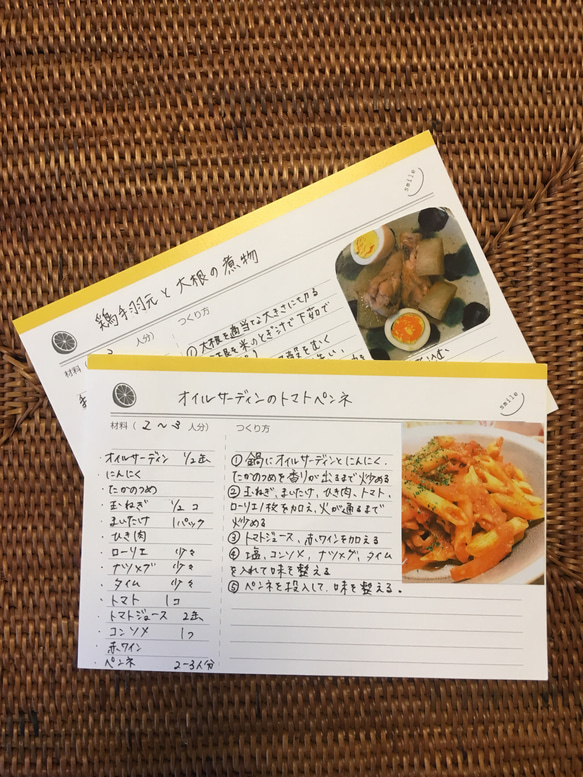 smile
鶏手羽元と大根の煮物
人分)
つくり方
① 大根を適当な大きさに切る
大根を米のとぎ汁で下茹で
をむく
材料
smile
オイルサーディンのトマトペンネ
材料( 2〜3 人分)
つくり方
・オイルサーディン 1/2缶
・にんにく
・たかのつめ
・玉ねぎ 1/2コ
・まいたけ 1パック
・ひき肉
・ローリエ 少々
・ナツメグ 少々
・タイム 少々
・トマト 1コ
・トマトジュース 2缶
・コンソメ 1つ
・赤ワイン
・ペンネ 2-3人分
① 鍋にオイルサーディンとにんにく、
たかのつめを香りが出るまで炒める
② 玉ねぎ、まいたけ、ひき肉、トマト、
ローリエ1枚を加え、火が通るまで
炒める
③ トマトジュース、赤ワインを加える
④ 塩、コンソメ、ナツメグ、タイム
を入れて味を整える
⑤ ペンネを投入して、味を整える。